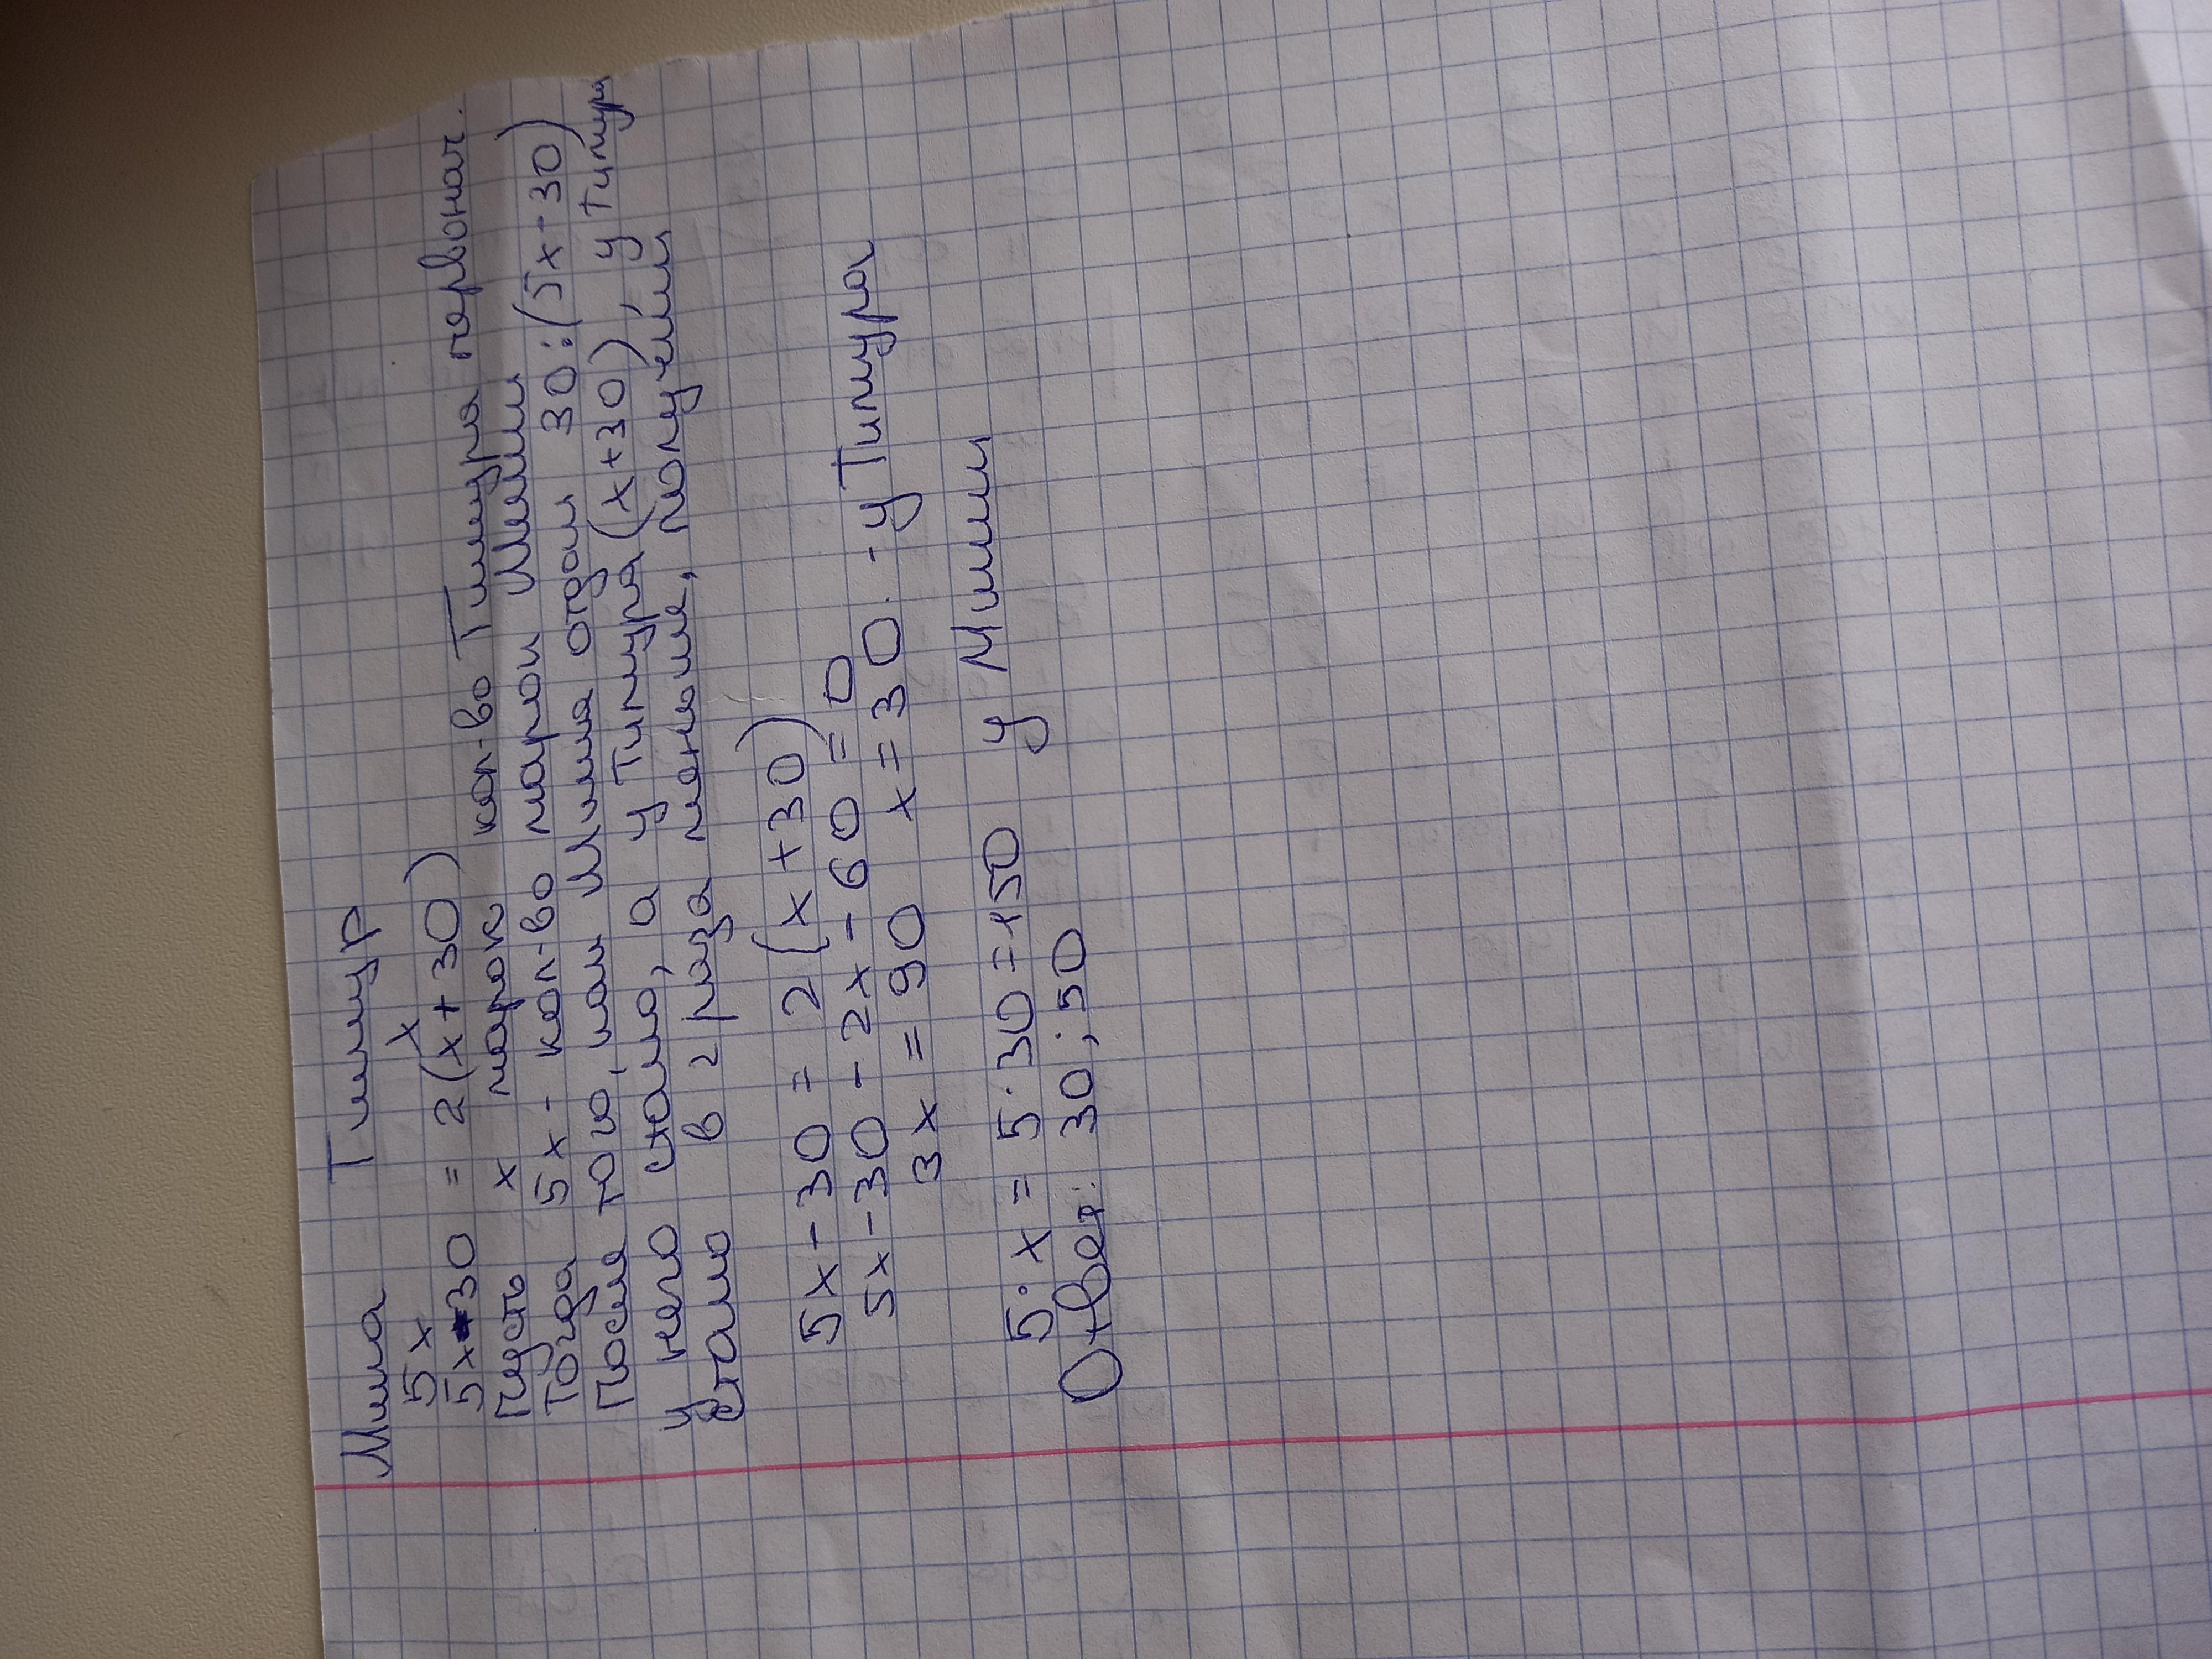 Миша Тимур
5x x
5x-30 = 2(x+30)
Пусть x марок кол-во Тимура первонач.
Тогда 5x - кол-во марок Миши
После того, как Миша отдал 30:(5x-30)
у него стало, а у Тимура (x+30), у Тимура
стало в 2 раза меньше, получении
5x-30 = 2(x+30)
5x-30-2x-60=0
3x = 90 x=30. - у Тимура
5·x = 5·30=150 у Миши
Ответ: 30; 50